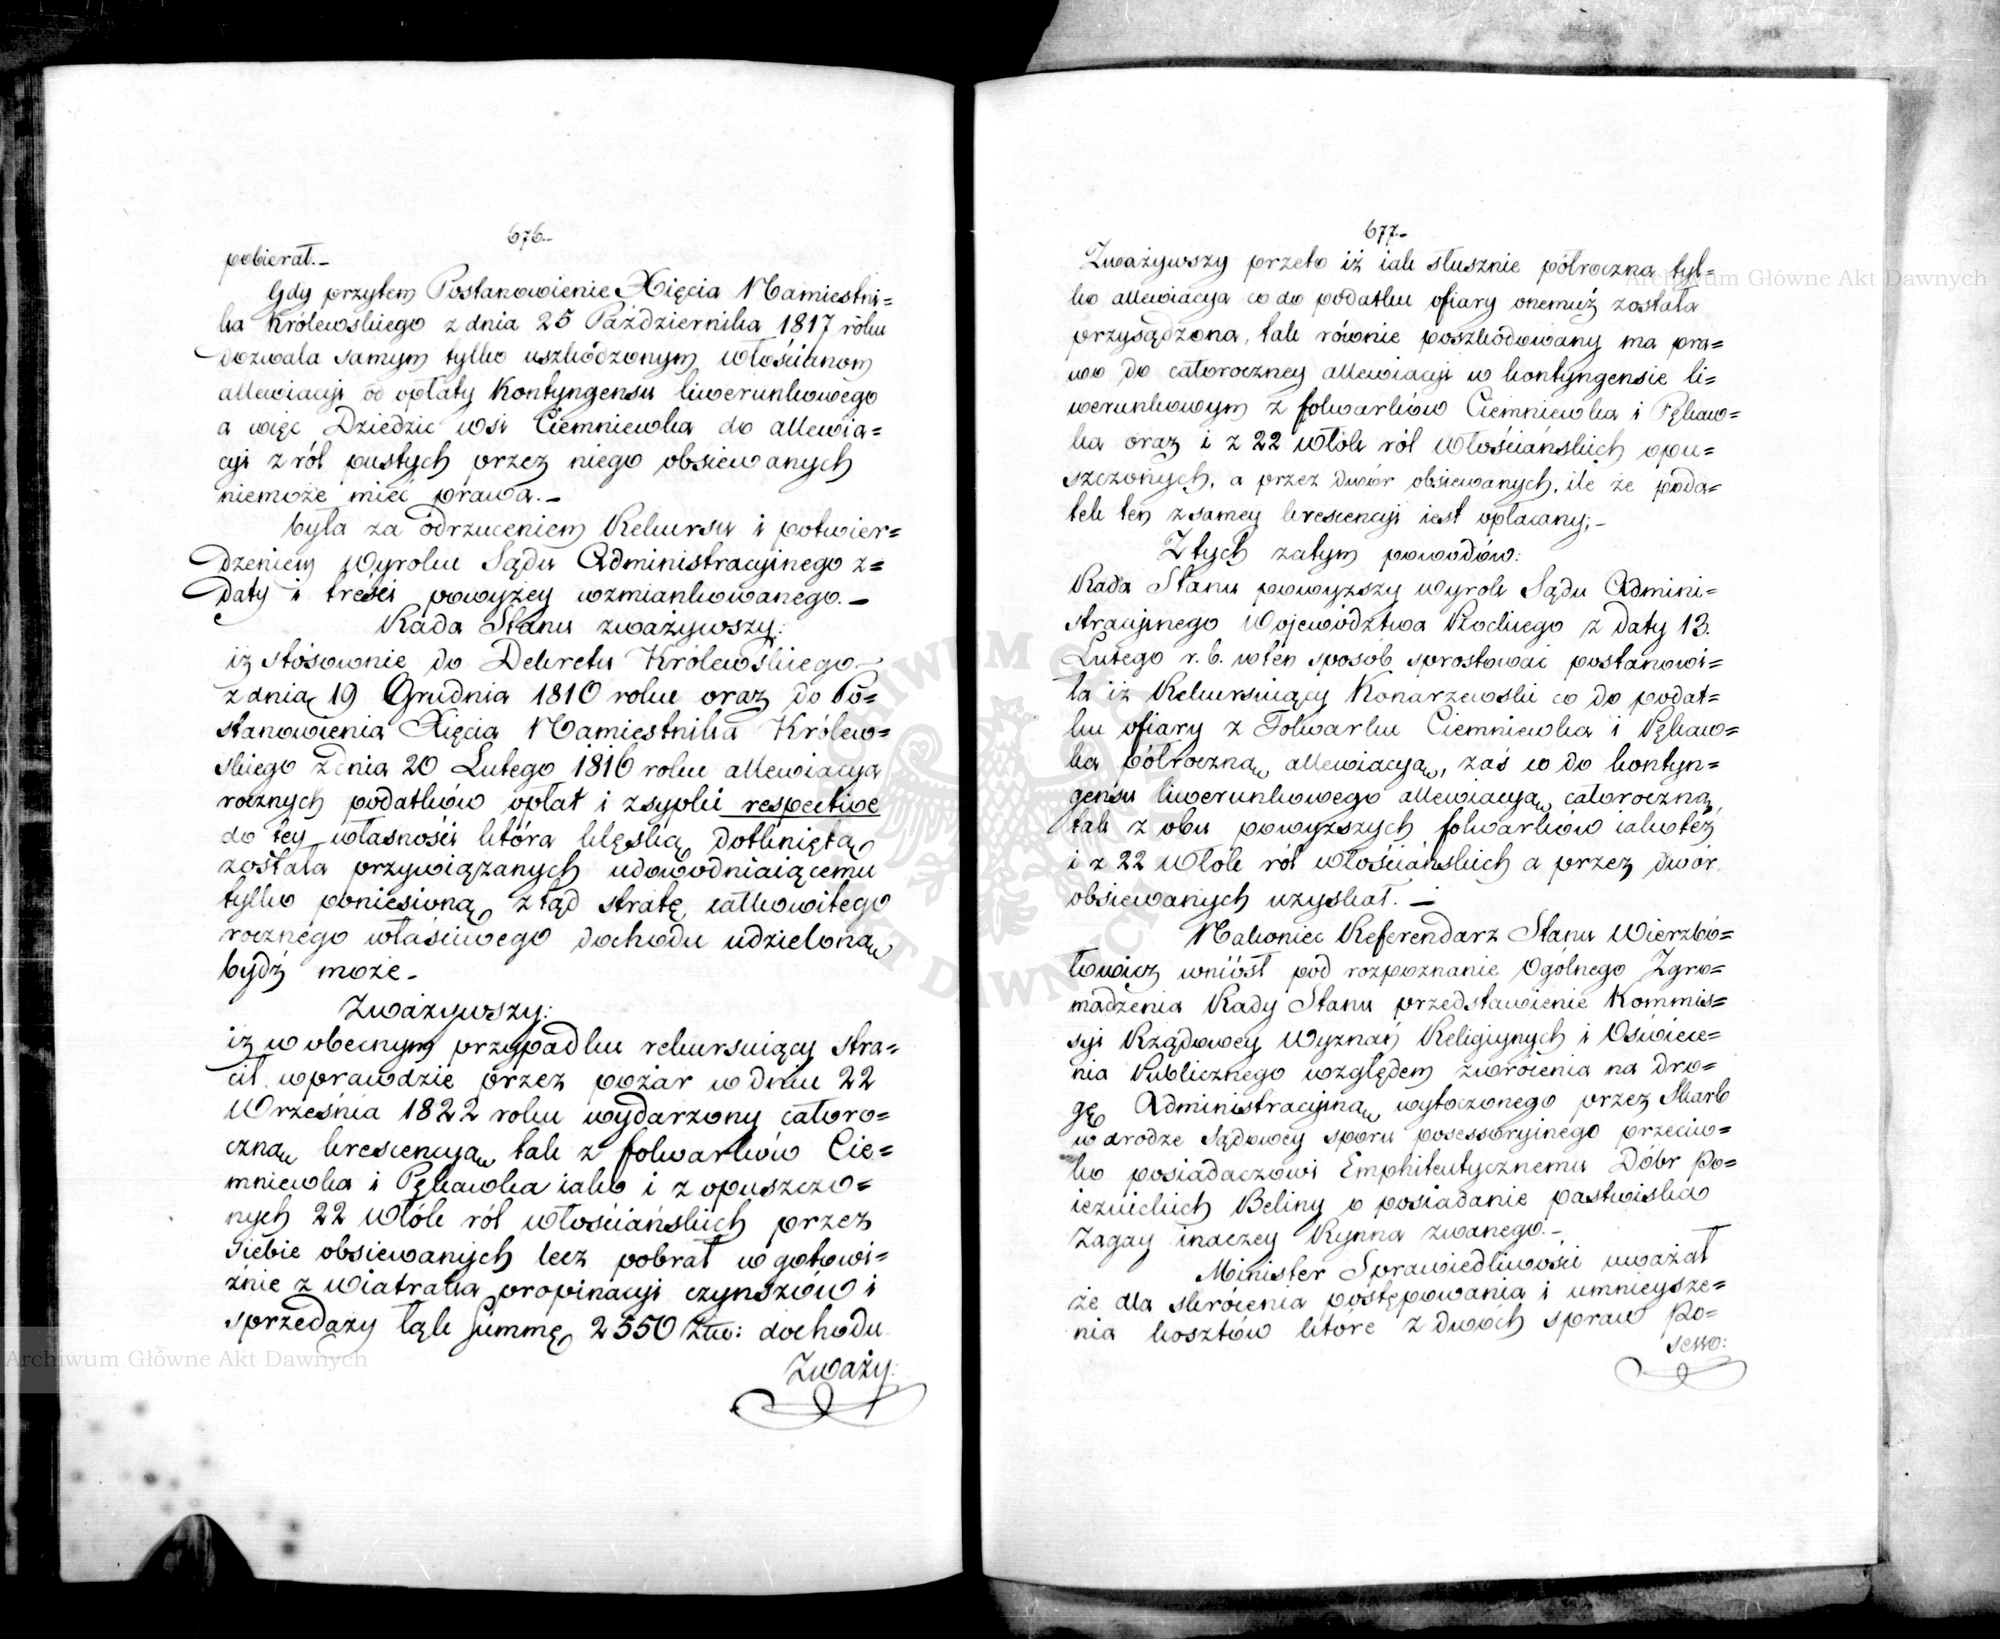 676.-
pobierał.-
Gdy przytem Postanowienie Xięcia Namiestni=
ka Królewskiego z dnia 25 Października 1817 roku
dozwala samym tylko uszkodzonym włościanom
allewiacyi od opłaty Kontyngensu liwerunkowego
a więc Dziedzic wsi Ciemniewka do allewia=
cyi z ról pustych przez niego obsiewanych
niemoże mieć prawa.-
była za odrzuceniem Rekursu i potwier=
dzeniem Wyroku Sądu Administracyjnego z=
daty i treści powyżey wzmiankowanego.-
Rada Stanu zważywszy:
iż stósownie do Dekretu Królewskiego
z dnia 19 Grudnia 1810 roku oraz do Po=
stanowienia Xięcia Namiestnika Królew=
skiego z dnia 20 Lutego 1816 roku allewiacya
rocznych podatków opłat i zsypki respective
do tey własności która klęską dotkniętą
została przywiązanych udowodniaiącemu
tylko poniesioną ztąd stratę całkowitego
rocznego właściwego dochodu udzieloną
bydź może.-
Zważywszy:
iż w obecnym przypadku rekursuiący stra=
cił wprawdzie przez pożar w dniu 22
Września 1822 roku wydarzony całoro=
czną krescencyą tak z folwarków Cie=
mniewka i Pękawka iako i z opuszczo=
nych 22 włók ról włościańskich przez
siebie obsiewanych lecz pobrał w gotowi=
źnie z wiatraka propinacyi czynszów i
sprzedaży łąk summę 2550 Złw: dochodu
Zważy:
677.-
Zważywszy przeto iż iak słusznie półroczna tyl=
ko allewiacya co do podatku ofiary onemuż została
przysądzona, tak równie poszkodowany ma pra=
wo do całoroczney allewiacyi w kontyngensie li=
werunkowym z folwarków Ciemniewka i Pękaw=
ka oraz i z 22 włók ról włościańskich opu=
szczonych, a przez dwór obsiewanych, ile że poda=
tek ten z samey krescencyi iest opłacany;-
Z tych zatym powodów:
Rada Stanu powyższy wyrok Sądu Admini=
stracyjnego Województwa Płockiego z daty 13.
Lutego r. b. w ten sposób sprostować postanowi=
ła iż Rekursuiący Konarzewski co do podat=
ku ofiary z Folwarku Ciemniewka i Pękaw=
ka półroczną allewiacyą, zaś co do kontyn=
gensu liwerunkowego allewiacyą całoroczną
tak z obu powyższych folwarków iakoteż
i z 22 włók ról włościańskich a przez dwór
obsiewanych uzyskał.-
Nakoniec Referendarz Stanu Wierzbo=
łowicz wniósł pod rozpoznanie Ogólnego Zgro=
madzenia Rady Stanu przedstawienie Kommis=
syi Rządowey Wyznań Religiynych i Oświece=
nia Publicznego względem zwrócenia na dro=
gę Administracyiną wytoczonego przez Skarb
w drodze sądowey sporu posessoryinego przeciw=
ko posiadaczowi Emphiteutycznemu Dóbr Po=
iezuickich Beliny o posiadanie pastwiska
Zagay inaczey Rynna zwanego.-
Minister Sprawiedliwości uważał
że dla skrócenia postępowania i umnieysze=
nia kosztów które z dwóch spraw Po=
sesso:
Archiwum Główne Akt Dawnych
Archiwum Główne Akt Dawnych
ARCHIWUM GŁÓWNE AKT DAWNYCH